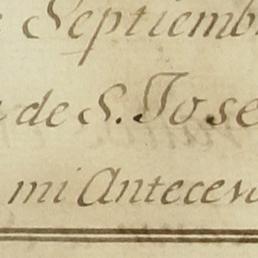 Septiemb
de S. Jose
mi Anteces